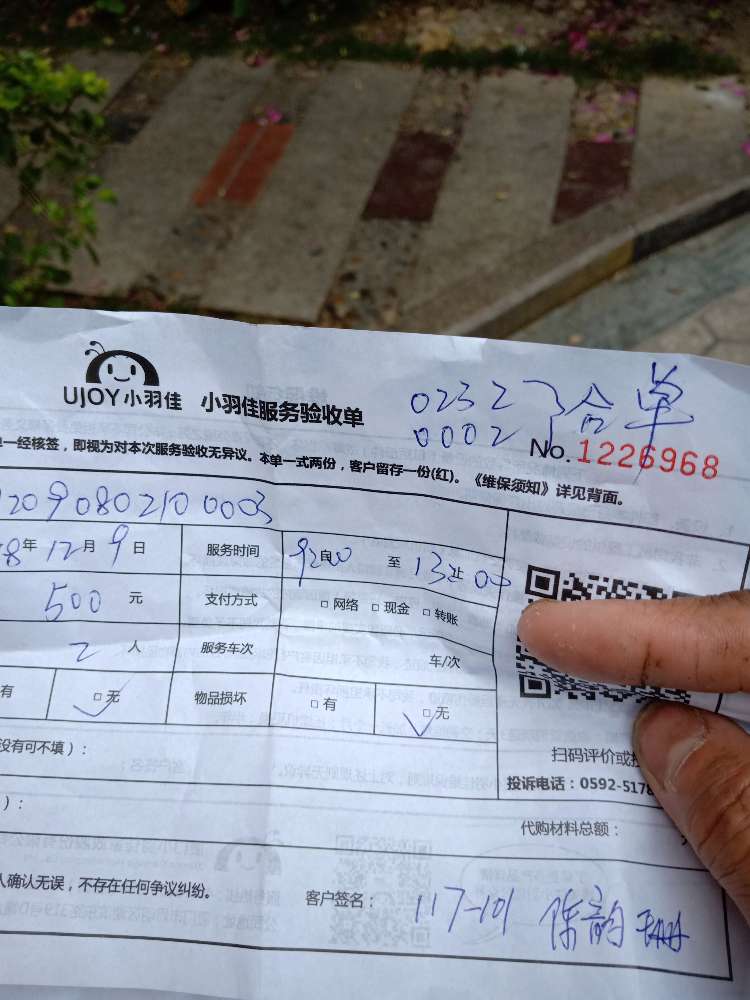 UJOY小羽佳 小羽佳服务验收单
0232
0002 合单
No.1226968
一经核签，即视为对本次服务验收无异议。本单一式两份，客户留存一份(红)。《维保须知》详见背面。
12090802100003
8年 12月 9日 服务时间 9 00 至 13 00
500 元 支付方式 □网络 □现金 □转账
2 人 服务车次 车/次
有 □无 物品损坏 □有 □无
扫码评价或投
没有可不填）：
投诉电话：0592-5178
）：
代购材料总额：
人确认无误，不存在任何争议纠纷。
客户签名： 117-101 陈韵